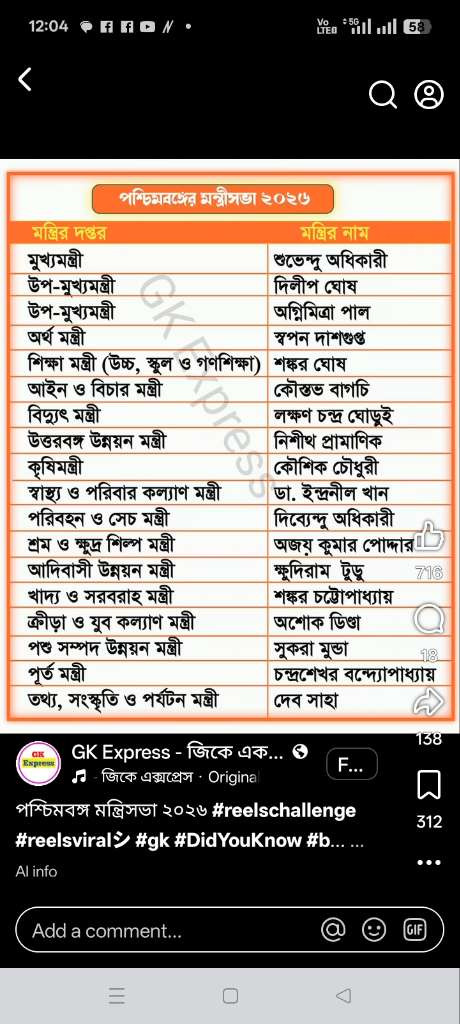 12:04
Vo LTE 5G 53
পশ্চিমবঙ্গের মন্ত্রীসভা ২০২৬
মন্ত্রির দপ্তর মন্ত্রির নাম
মুখ্যমন্ত্রী শুভেন্দু অধিকারী
উপ-মুখ্যমন্ত্রী দিলীপ ঘোষ
উপ-মুখ্যমন্ত্রী অগ্নিমিত্রা পাল
অর্থ মন্ত্রী স্বপন দাশগুপ্ত
শিক্ষা মন্ত্রী (উচ্চ, স্কুল ও গণশিক্ষা) শঙ্কর ঘোষ
আইন ও বিচার মন্ত্রী কৌস্তভ বাগচি
বিদ্যুৎ মন্ত্রী লক্ষণ চন্দ্র ঘোড়ুই
উত্তরবঙ্গ উন্নয়ন মন্ত্রী নিশীথ প্রামাণিক
কৃষিমন্ত্রী কৌশিক চৌধুরী
স্বাস্থ্য ও পরিবার কল্যাণ মন্ত্রী ডা. ইন্দ্রনীল খান
পরিবহন ও সেচ মন্ত্রী দিব্যেন্দু অধিকারী
শ্রম ও ক্ষুদ্র শিল্প মন্ত্রী অজয় কুমার পোদ্দার
আদিবাসী উন্নয়ন মন্ত্রী ক্ষুদিরাম টুডু
খাদ্য ও সরবরাহ মন্ত্রী শঙ্কর চট্টোপাধ্যায়
ক্রীড়া ও যুব কল্যাণ মন্ত্রী অশোক ডিণ্ডা
পশু সম্পদ উন্নয়ন মন্ত্রী সুকরা মুন্ডা
পূর্ত মন্ত্রী চন্দ্রশেখর বন্দ্যোপাধ্যায়
তথ্য, সংস্কৃতি ও পর্যটন মন্ত্রী দেব সাহা
GK Express
716
18
138
312
GK Express
GK Express - জিকে এক...
F...
- জিকে এক্সপ্রেস · Original
পশ্চিমবঙ্গ মন্ত্রিসভা ২০২৬ #reelschallenge
#reelsviralシ #gk #DidYouKnow #b... ...
AI info
Add a comment...
GIF